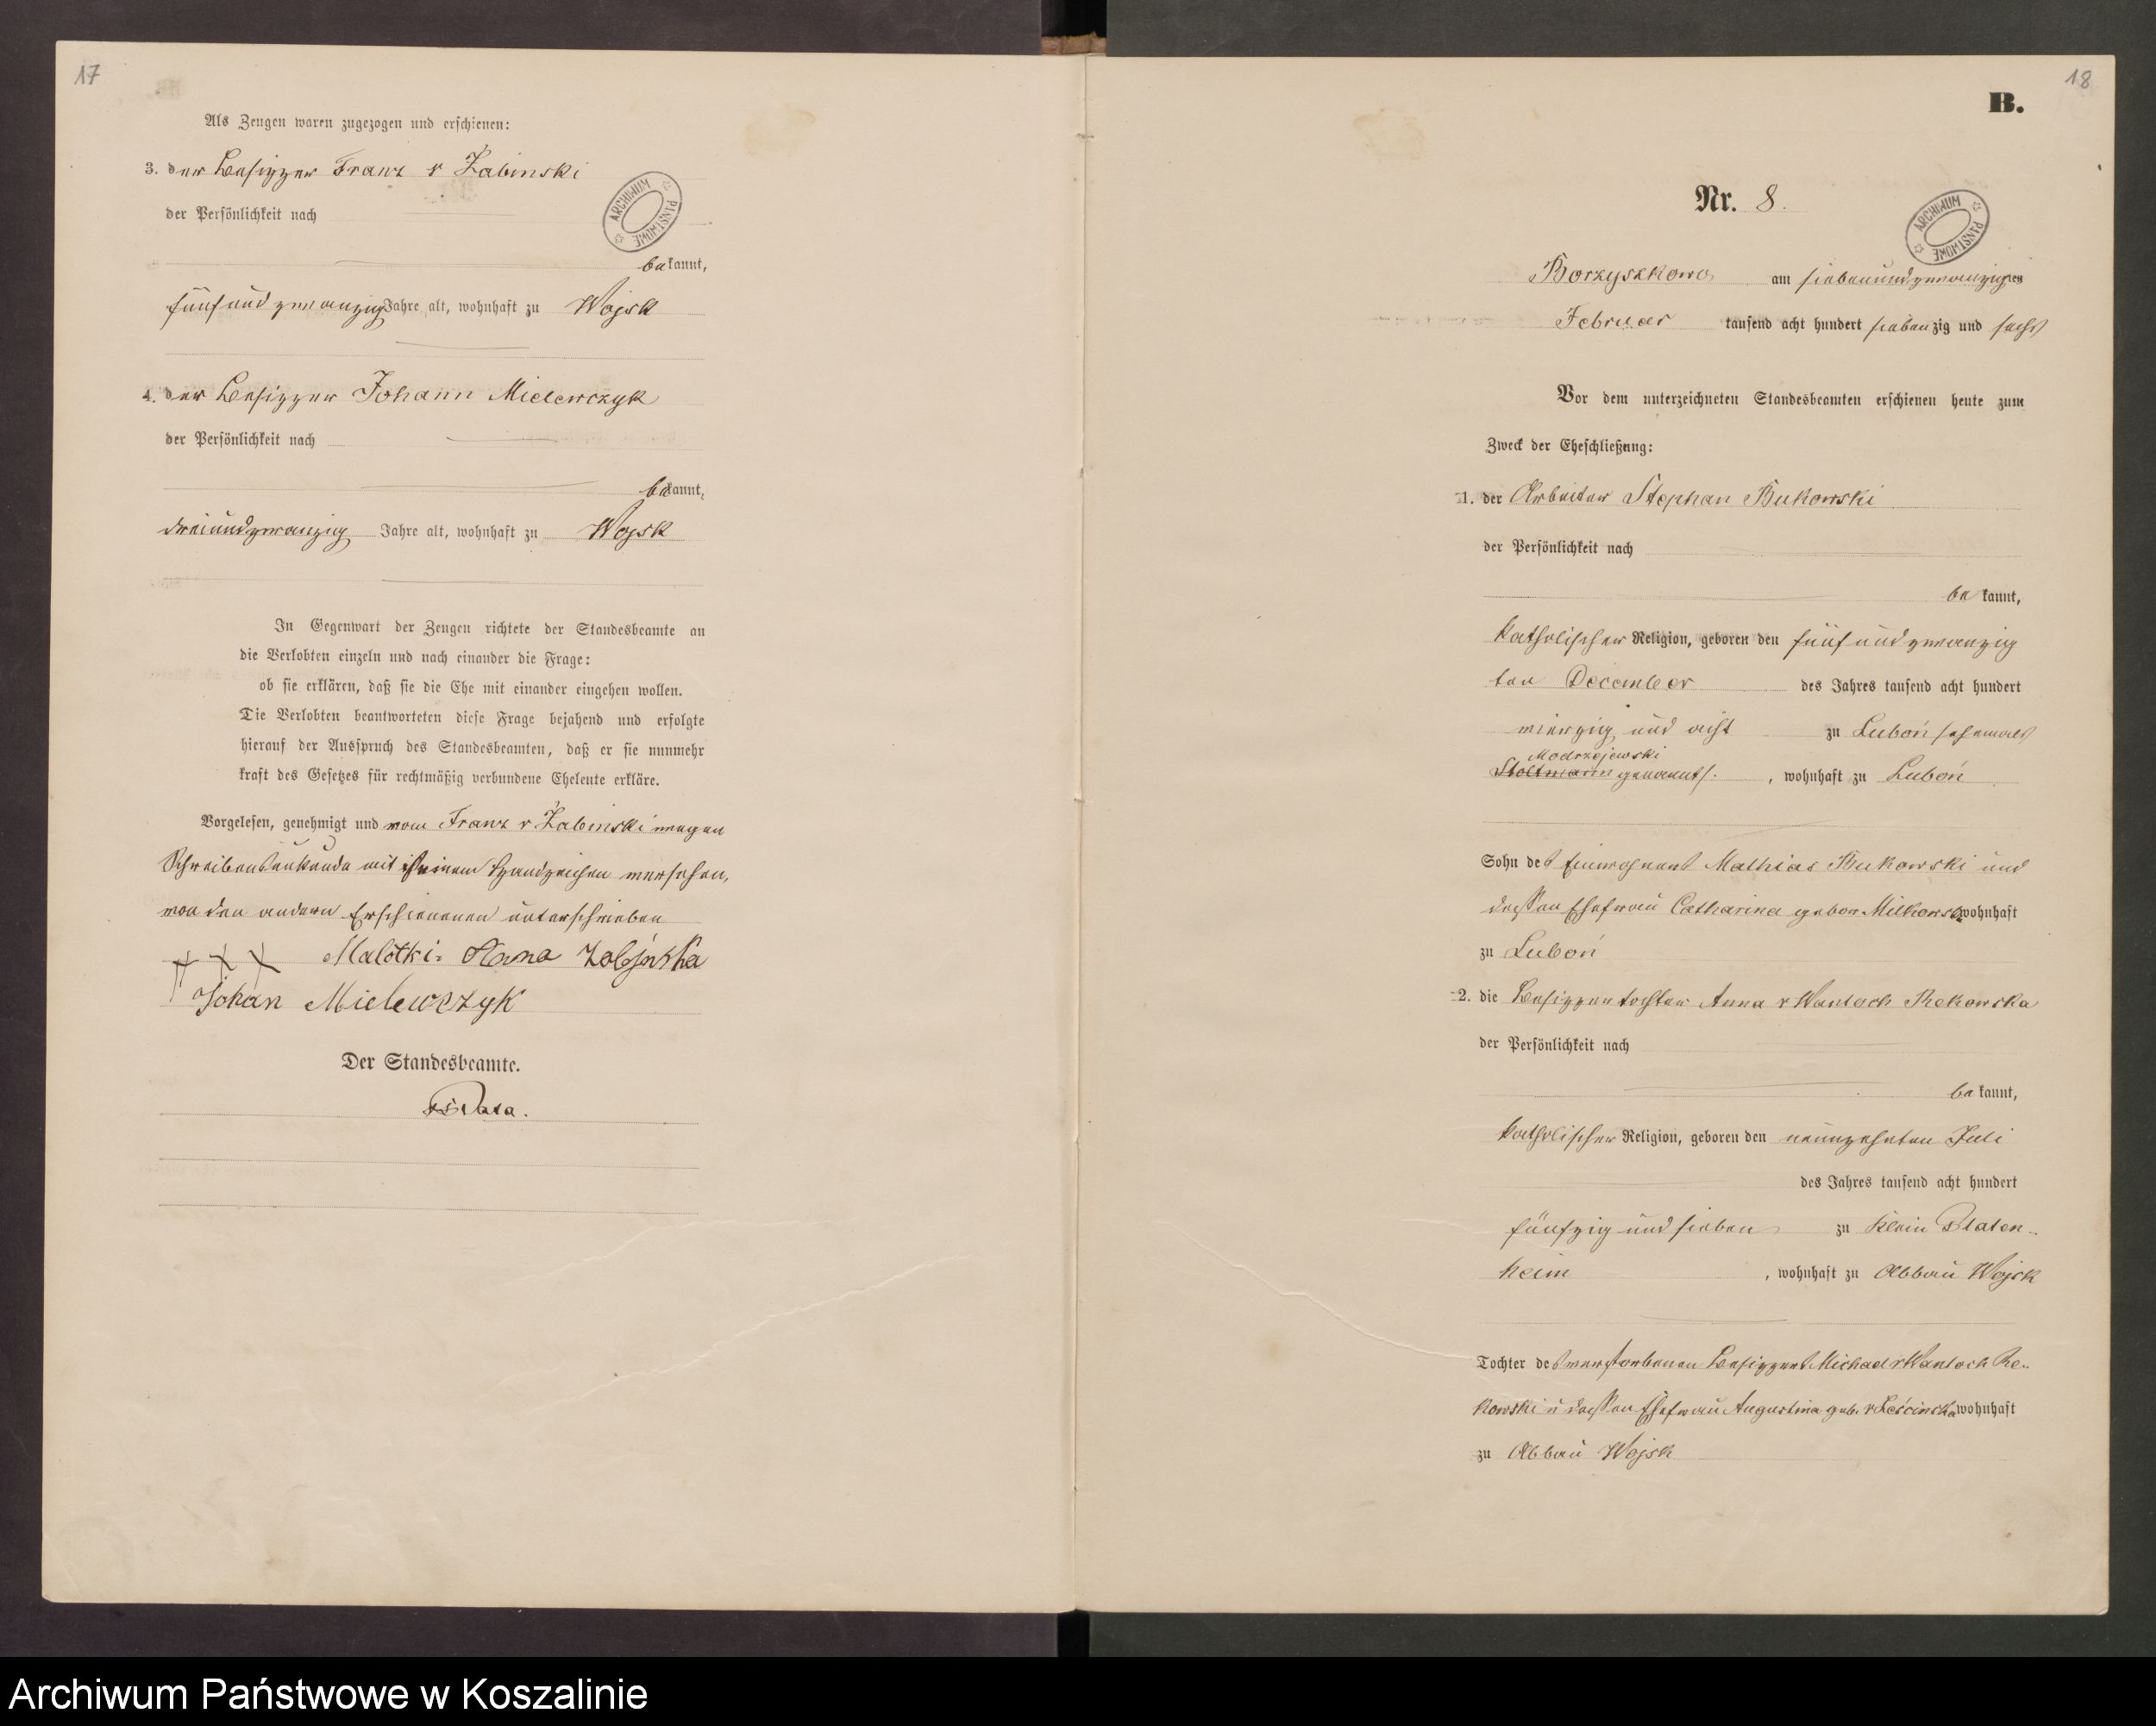 17
Als Zeugen waren zugezogen und erschienen:
3. der Besitzer Franz v Żabinski
der Persönlichkeit nach
bekannt,
fünf und zwanzig Jahre alt, wohnhaft zu Wojsk
4. der Besitzer Johann Mielewczyk
der Persönlichkeit nach
bekannt,
dreiundzwanzig Jahre alt, wohnhaft zu Wojsk
In Gegenwart der Zeugen richtete der Standesbeamte an
die Verlobten einzeln und nach einander die Frage:
ob sie erklären, daß sie die Ehe mit einander eingehen wollen.
Die Verlobten beantworteten diese Frage bejahend und erfolgte
hierauf der Ausspruch des Standesbeamten, daß er sie nunmehr
kraft des Gesetzes für rechtmäßig verbundene Eheleute erkläre.
Vorgelesen, genehmigt und vom Franz v Żabinski wegen
Schreibensunkunde mit seinem Handzeichen versehen,
von den andern Erschienenen unterschrieben
+ + + Malotki Anna Zabinska
Johan Mielewczyk
Der Standesbeamte.
ARCHIWUM PAŃSTWOWE
18
B.
Nr. 8.
ARCHIWUM PAŃSTWOWE
Borzyszkowo am siebenundzwanzigten
Februar tausend acht hundert siebenzig und sechs
Vor dem unterzeichneten Standesbeamten erschienen heute zum
Zweck der Eheschließung:
1. der Arbeiter Stephan Bukowski
der Persönlichkeit nach
bekannt,
katholischer Religion, geboren den fünf und zwanzig
ten December des Jahres tausend acht hundert
vierzig und acht zu Luboń /ehemals
Modrzejewski
Stoltmann genannt/. , wohnhaft zu Luboń
Sohn des Einwohners Mathias Bukowski und
dessen Ehefrau Catharina gebor. wohnhaft
zu Luboń
2. die Besitzertochter Anna v Wantoch Rekowska
der Persönlichkeit nach
bekannt,
katholischer Religion, geboren den neunzehnten Juli
des Jahres tausend acht hundert
fünfzig und sieben zu Klein Platen-
heim , wohnhaft zu Abbau Wojsk
Tochter des verstorbenen Besitzers Michael v Wantoch Re-
kowski u dessen Ehefrau Augustina geb. v Leścinska wohnhaft
zu Abbau Wojsk
Archiwum Państwowe w Koszalinie